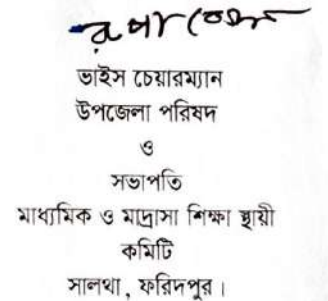 রূপা বেগম
ভাইস চেয়ারম্যান
উপজেলা পরিষদ
ও
সভাপতি
মাধ্যমিক ও মাদ্রাসা শিক্ষা স্থায়ী
কমিটি
সালথা, ফরিদপুর।